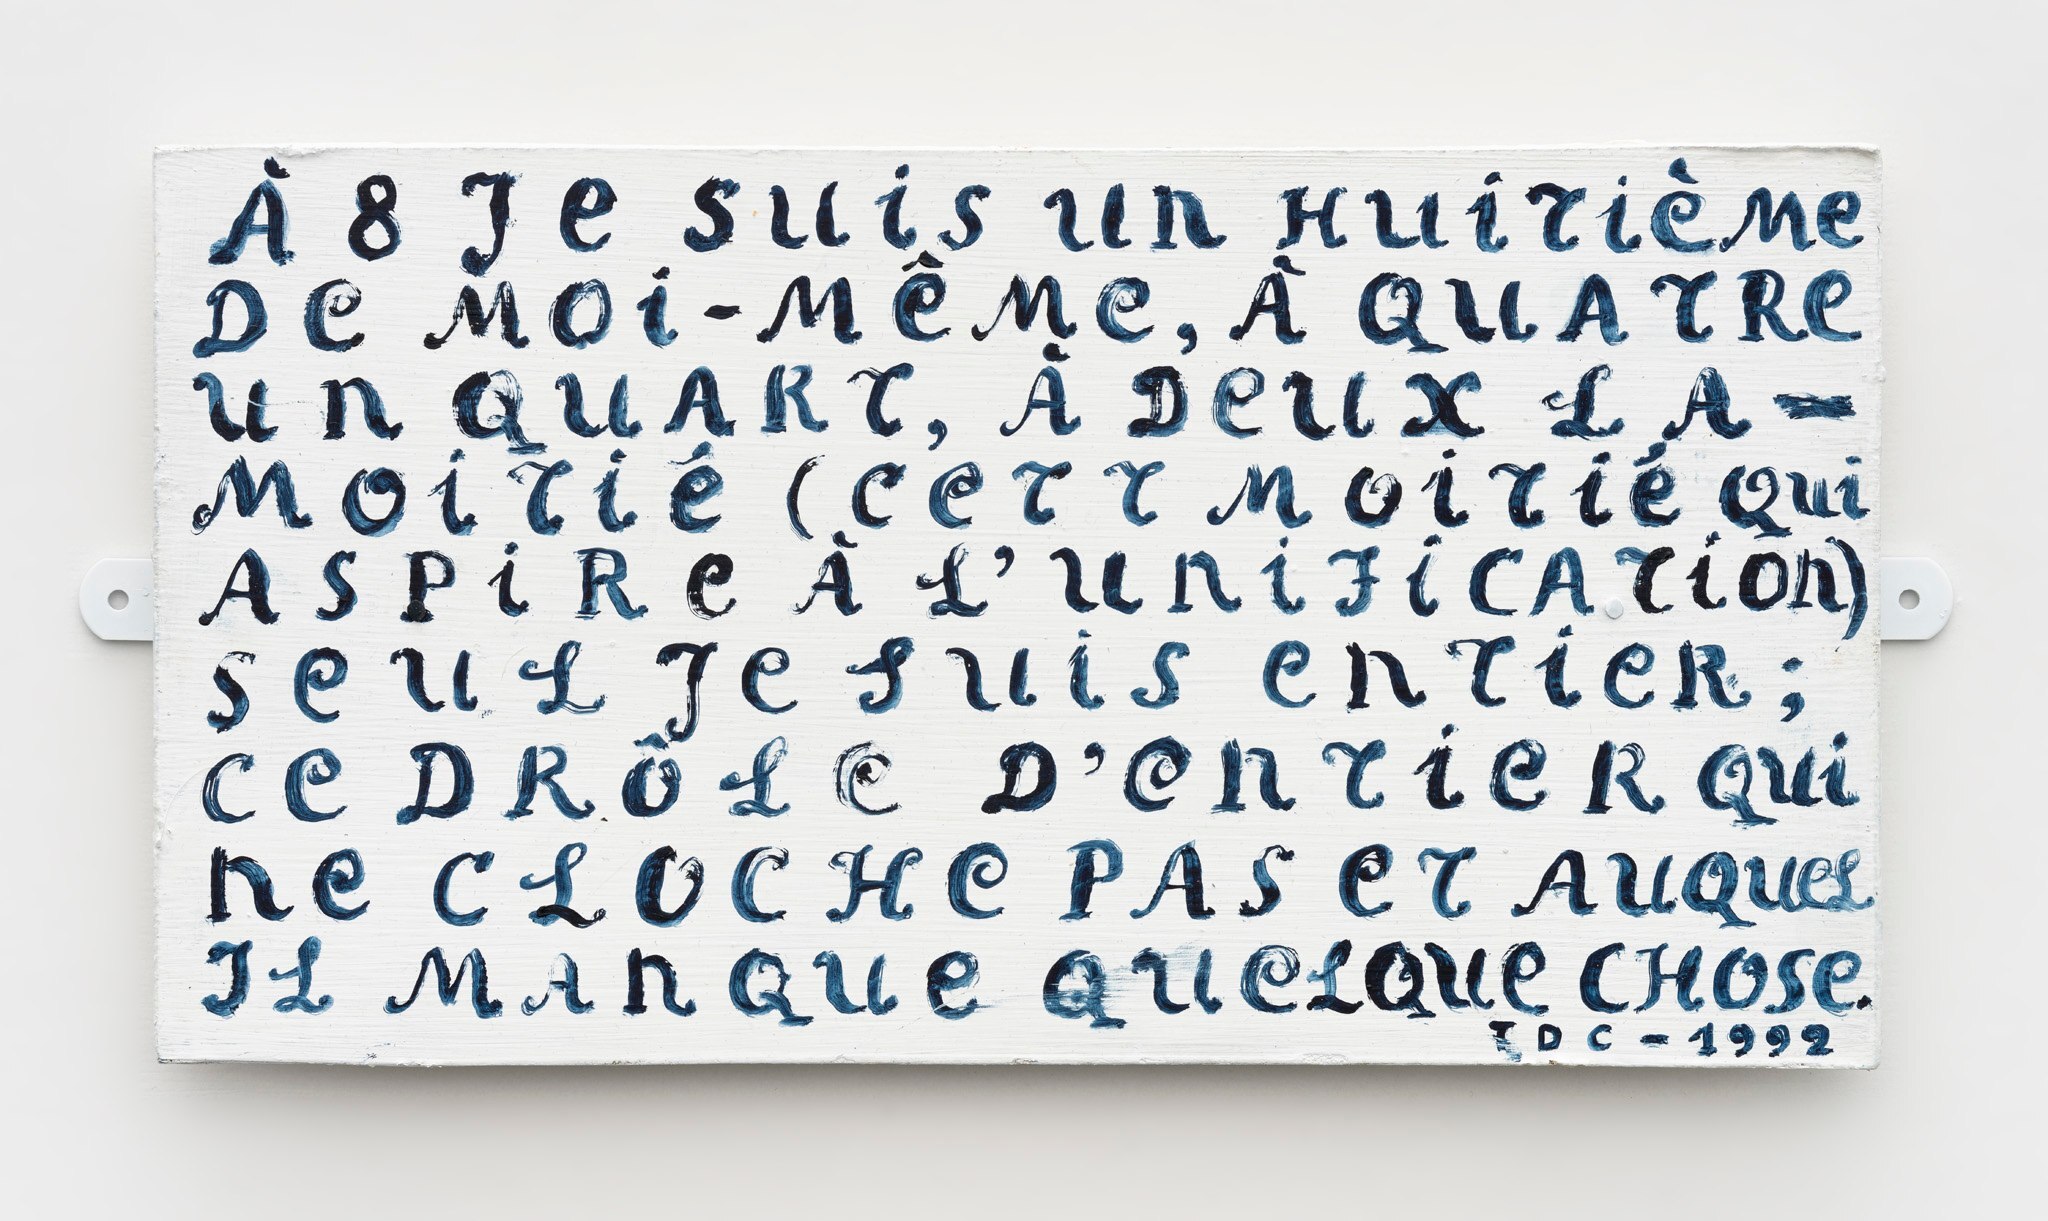 À 8 JE SUIS UN HUITIÈME
DE MOI-MÊME, À QUATRE
UN QUART, À DEUX LA-
MOITIÉ (CETT MOITIÉ QUI
ASPIRE À L'UNIFICATION)
SEUL JE SUIS ENTIER;
CE DRÔLE D'ENTIER QUI
NE CLOCHE PAS ET AUQUEL
IL MANQUE QUELQUE CHOSE.
TDC-1992